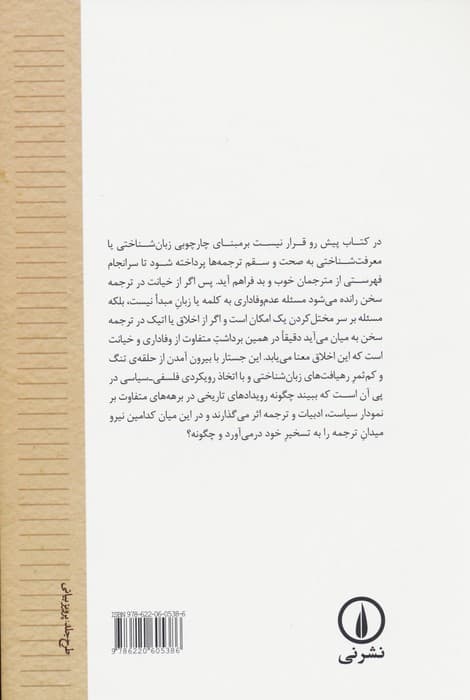 در کتاب پیش رو قرار نیست برمبنای چارچوبی زبان‌شناختی یا
معرفت‌شناختی به صحت و سقم ترجمه‌ها پرداخته شود تا سرانجام
فهرستی از مترجمان خوب و بد فراهم آید. پس اگر از خیانت در ترجمه
سخن رانده می‌شود مسئله عدم‌وفاداری به کلمه یا زبانِ مبدأ نیست، بلکه
مسئله بر سر مختل‌کردن یک امکان است و اگر از اخلاق یا اتیک در ترجمه
سخن به میان می‌آید دقیقاً در همین برداشتِ متفاوت از وفاداری و خیانت
است که این اخلاق معنا می‌یابد. این جستار با بیرون آمدن از حلقه‌ی تنگ
و کم‌ثمرِ رهیافت‌های زبان‌شناختی و با اتخاذ رویکردی فلسفی-سیاسی در
پی آن است که ببیند چگونه رویدادهای تاریخی در برهه‌های متفاوت بر
نمودار سیاست، ادبیات و ترجمه اثر می‌گذارند و در این میان کدامین نیرو
میدانِ ترجمه را به تسخیرِ خود درمی‌آورد و چگونه؟
طرح جلد: پرویز بیانی
ISBN 978-622-06-0538-6
9 786220 605386
نشرنی